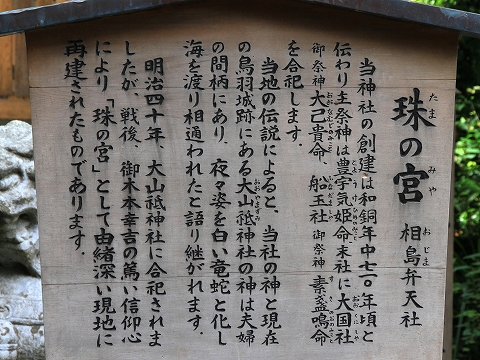 珠の宮 相島弁天社
たまのみや おじま
当神社の創建は和銅年中七一〇年頃と
伝わり主祭神は豊宇気姫命末社に大国社
御祭神 大己貴命、船玉社 御祭神 素盞鳴命
を合祀します。
当地の伝説によると、当社の神と現在
の鳥羽城跡にある大山祇神社の神は夫婦
の間柄にあり、夜々姿を白い竜蛇と化し
海を渡り相通われたと語り継がれます。
明治四十年、大山祇神社に合祀されま
したが、戦後、御木本幸吉の篤い信仰心
により「珠の宮」として由緒深い現地に
再建されたものであります。